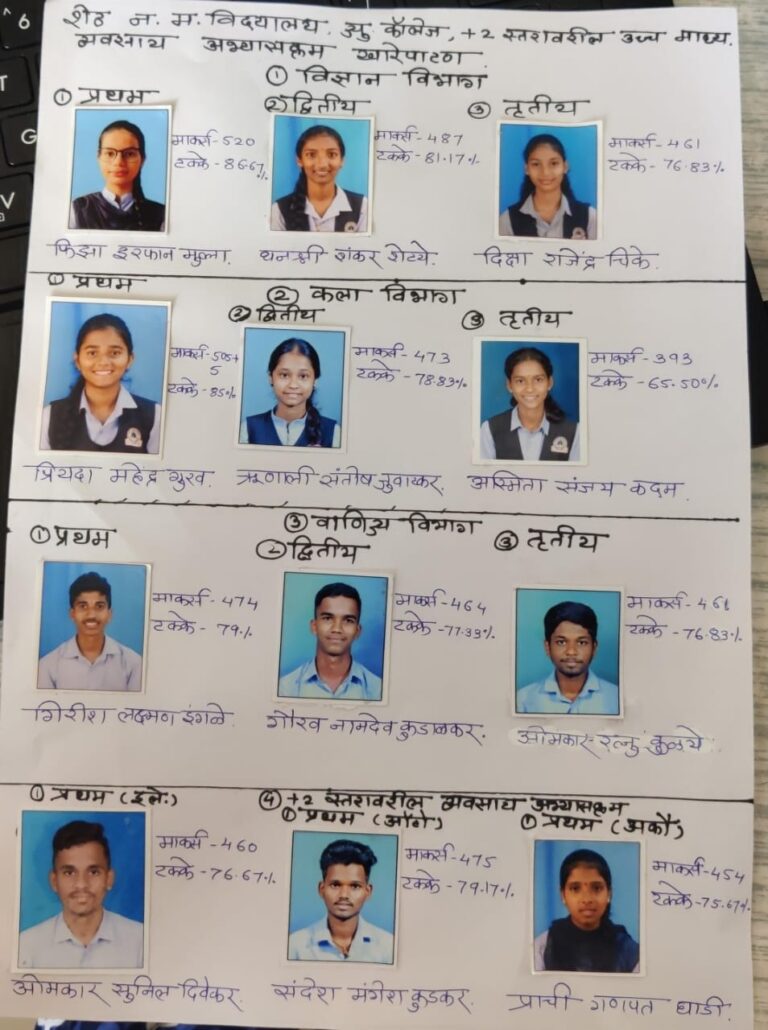 शेठ न. म. विद्यालय, ज्यु कॉलेज, +2 स्तरावरील उच्च माध्य.
व्यवसाय अभ्यासक्रम खारेपाटण
① विज्ञान विभाग
① प्रथम ② द्वितीय ③ तृतीय
मार्क्स - 520 मार्क्स - 487 मार्क्स - 461
टक्के - 86.67% टक्के - 81.17% टक्के - 76.83%
फिझा इरफान मुल्ला. धनश्री शंकर शेटये. दिक्षा राजेंद्र चिके.
② कला विभाग
① प्रथम ② द्वितीय ③ तृतीय
मार्क्स - 505+5 मार्क्स - 473 मार्क्स - 393
टक्के - 85% टक्के - 78.83% टक्के - 65.50%
प्रियदा महेंद्र गुरव. ऋणाली संतोष जुवाटकर. अस्मिता संजय कदम.
③ वाणिज्य विभाग
① प्रथम ② द्वितीय ③ तृतीय
मार्क्स - 474 मार्क्स - 464 मार्क्स - 461
टक्के - 79% टक्के - 77.33% टक्के - 76.83%
गिरीश लक्ष्मण इंगळे. गौरव नामदेव कुडाळकर. ओमकार रत्नु कुळये
④ +2 स्तरावरील व्यवसाय अभ्यासक्रम
① प्रथम (इले:) ① प्रथम (ऑटो) ① प्रथम (अकौ)
मार्क्स - 460 मार्क्स - 475 मार्क्स - 454
टक्के - 76.67% टक्के - 79.17% टक्के - 75.67%
ओमकार सुनिल दिवेकर. संदेश मंगेश कुडकर. प्राची गणपत घाडी.